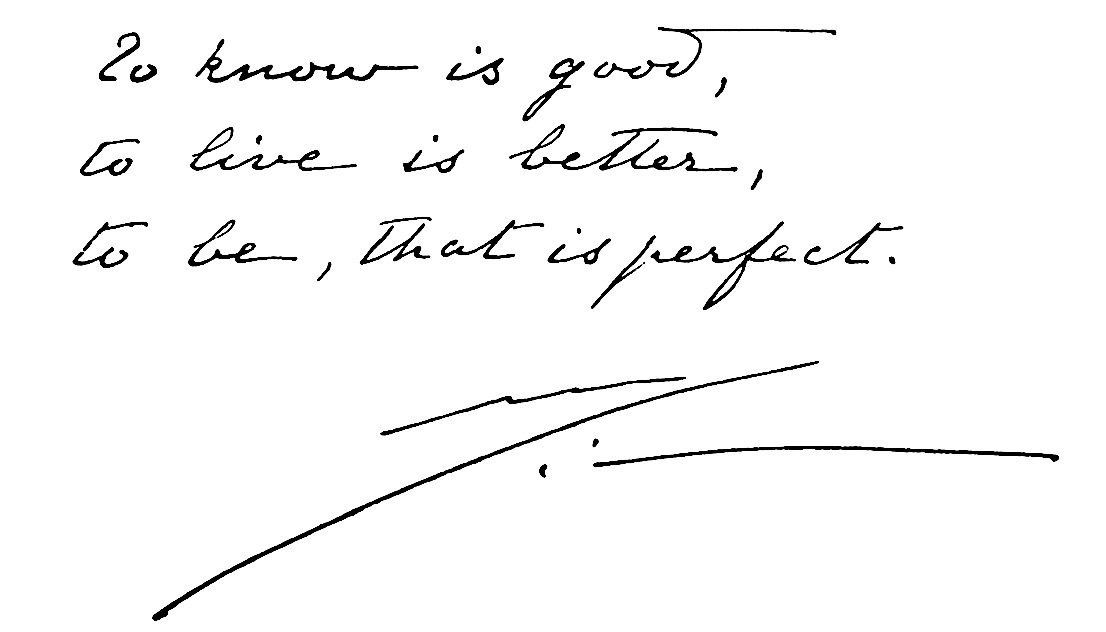 To know is good,
to live is better,
to be, that is perfect.